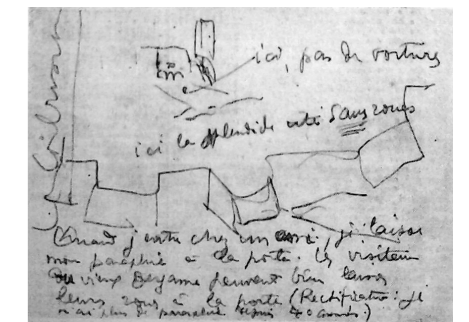 ici, pas de voitures
ici la splendide cité sans roues
Quand j'entre chez un ami, je laisse
mon parapluie à la porte. Les visiteurs
du vieux Bergame peuvent bien laisser
leurs roues à la porte (Rectification: je
n'ai plus de parapluie depuis 40 ans!)